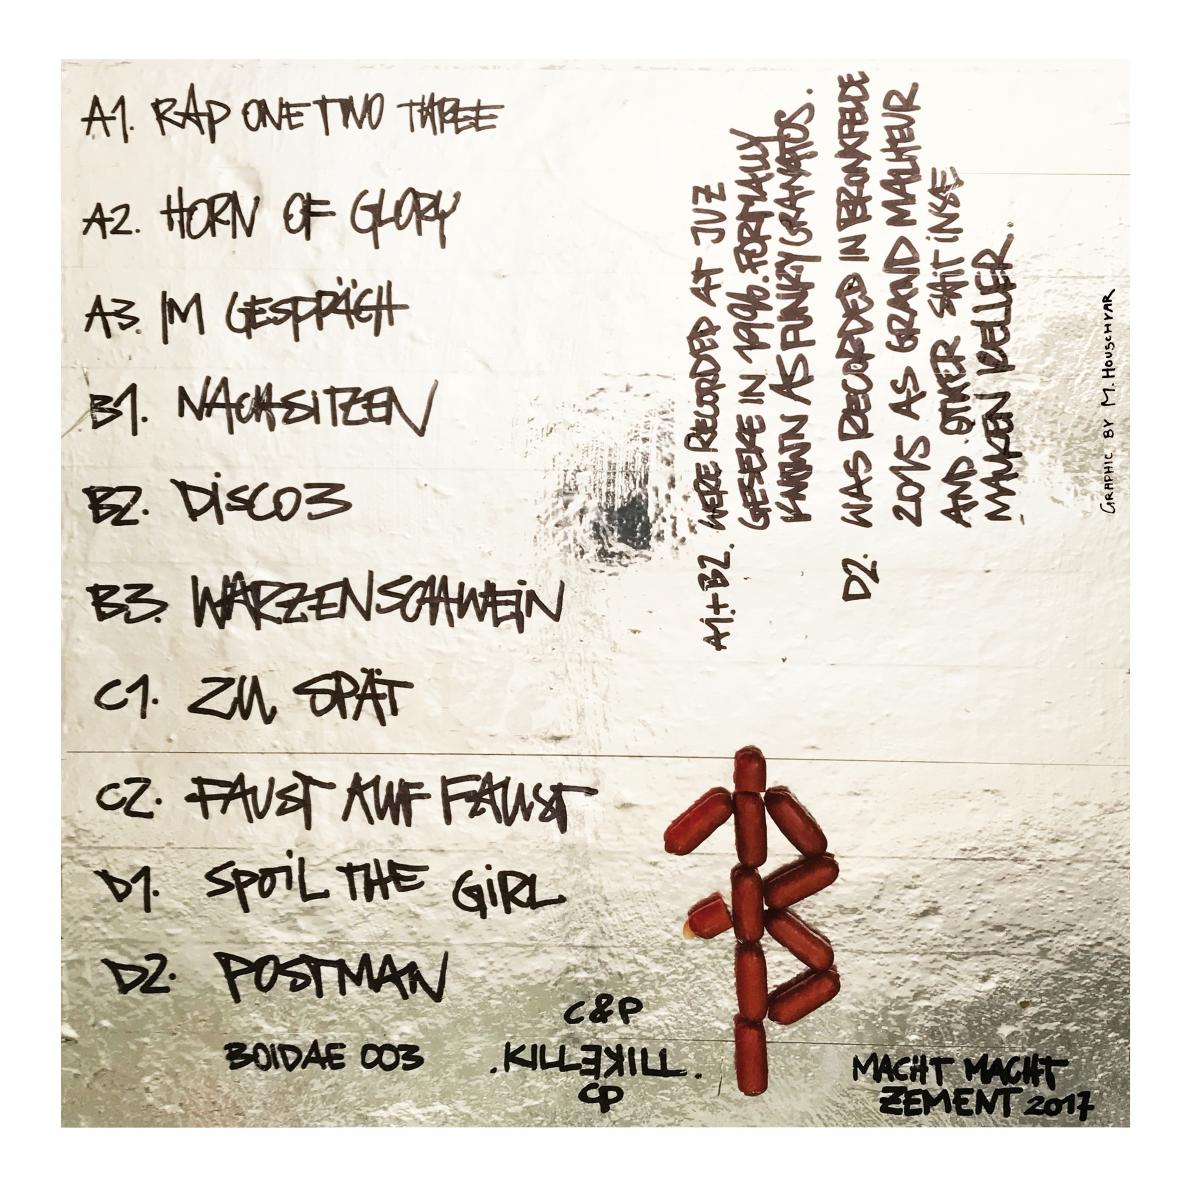 A1. RAP ONE TWO THREE
A2. HORN OF GLORY
A3. IM GESPRÄCH
B1. NACHSITZEN
B2. DISCO3
B3. WARZENSCHWEIN
C1. ZU SPÄT
C2. FAUST AUF FAUST
D1. SPOIL THE GIRL
D2. POSTMAN
BOIDAE 003
C&P
.KILLEKILL.
CP
A1.+B2. WERE RECORDED AT JUZ
GESEKE IN 1996. FORMALLY
KNOWN AS FUNKY GRANATOS.
D2. WAS RECORDED IN
2015 AS GRAND MALHEUR
AND OTHER SHIT INSE
KELLER.
GRAPHIC BY M. HOUSCHYAR
MACHT MACHT
ZEMENT 2017